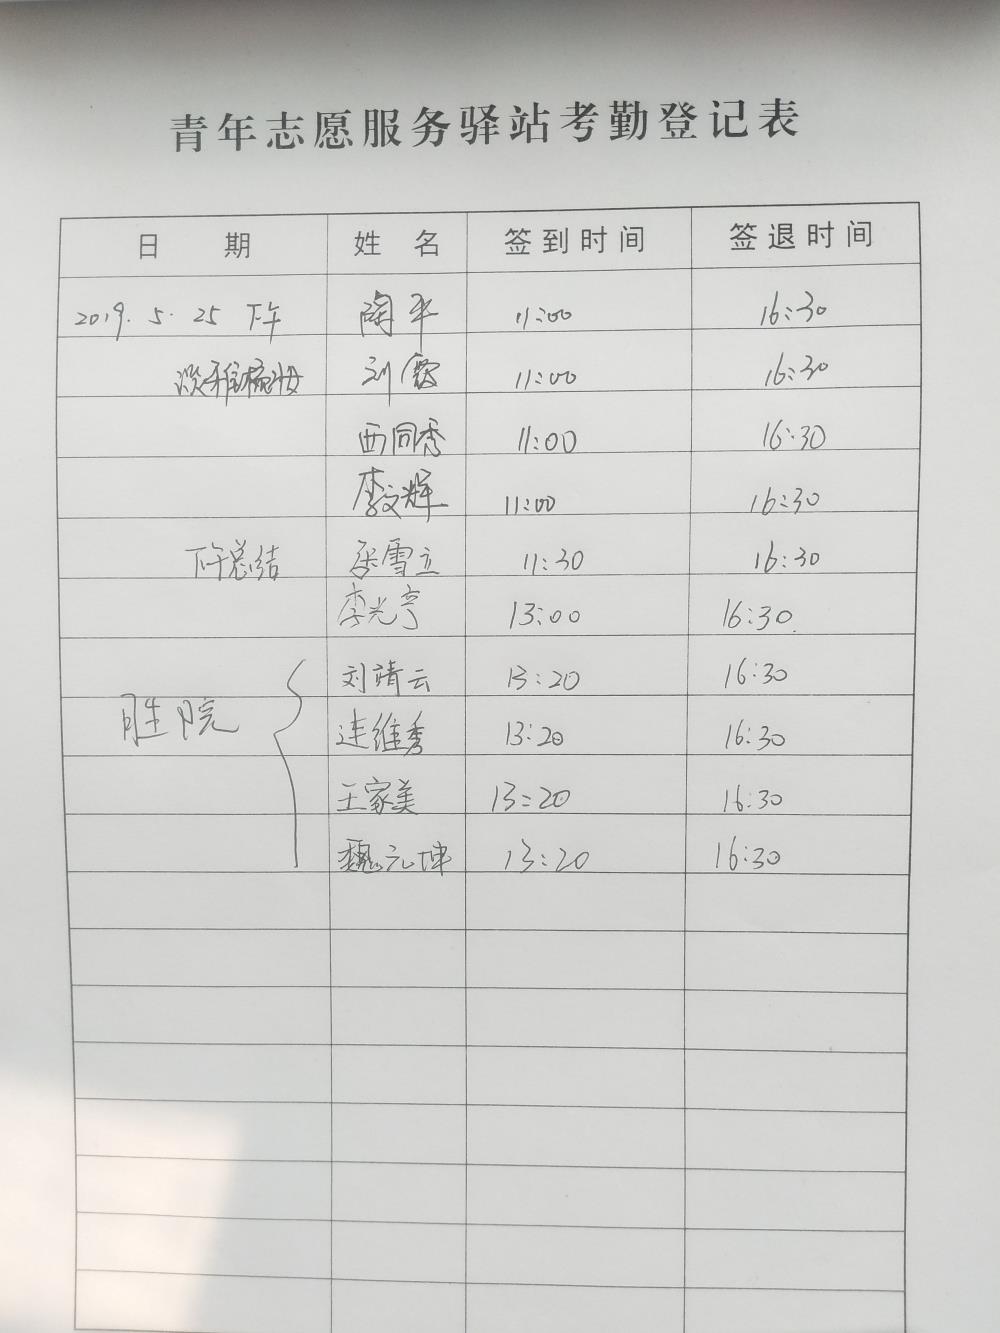 青年志愿服务驿站考勤登记表
日 期 姓 名 签到时间 签退时间
2019.5.25 下午 陶平 11:00 16:30
淡雅梳妆 刘霞 11:00 16:30
西同秀 11:00 16:30
李文辉 11:00 16:30
下午总结 雪立 11:30 16:30
李光亭 13:00 16:30
刘靖云 13:20 16:30
胜院 连维秀 13:20 16:30
王家美 13:20 16:30
魏元坤 13:20 16:30